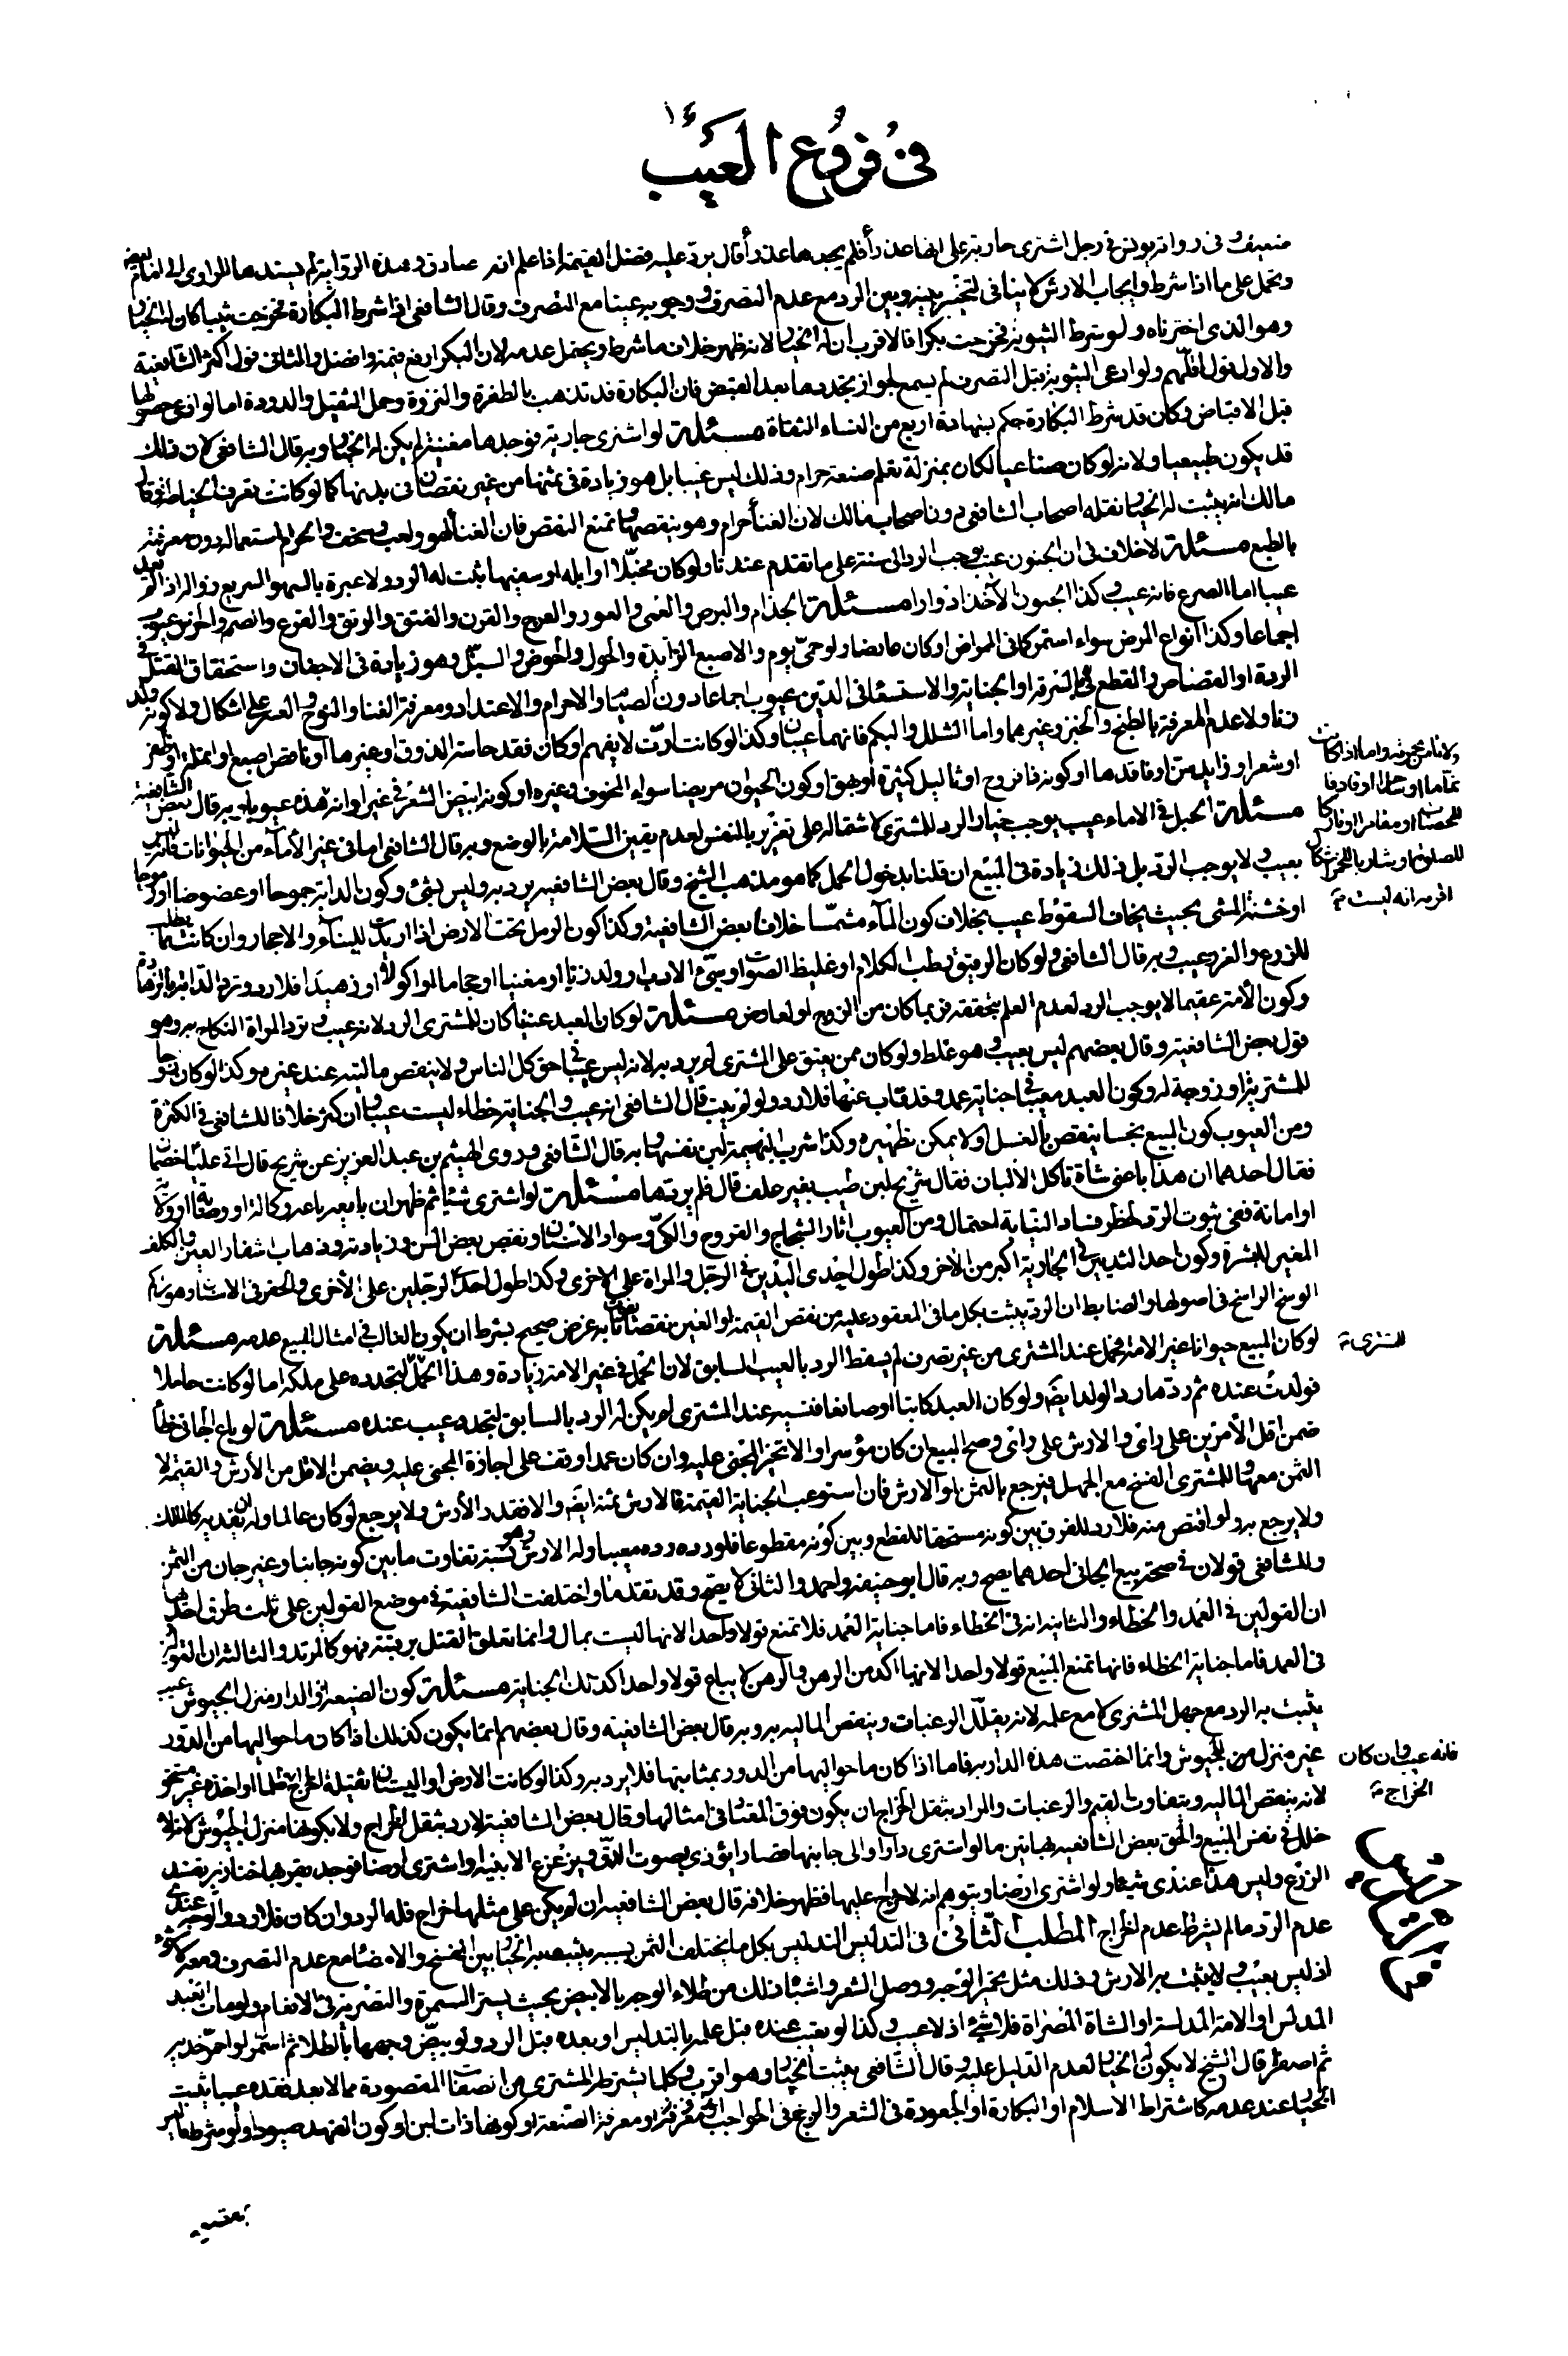 في فروع العيب
ضعيف وفي رواية يونس في رجل اشترى جارية على انها عذراء فلم يجدها عذراء قال يرد عليه فضل القيمة اذا علم انه صادق وهذه الرواية لم يسندها الراوي الى امام
ويحمل على ما اذا شرط وايجاب الارش لا ينافي التخيير بينه وبين الرد مع عدم التصرف ووجوبه عينا مع التصرف وقال الشافعي اذا شرط البكارة فخرجت ثيبا كان له الخيار
وهو الذي اخترناه ولو شرط الثيوبة فخرجت بكرا فالاقرب ان له الخيار لانه ظهر خلاف ما شرط ويحتمل عدمه لان البكر ارفع قيمة وافضل والثاني قول اكثر الشافعية
والاول قول اقلهم ولو ادعى الثيوبة قبل التصرف لم يسمع لجواز تجددها بعد القبض فان البكارة قد تذهب بالطفرة والنزوة وحمل الثقيل والدودة اما لو ادعى حصولها
قبل الاقباض وكان قد شرط البكارة حكم بشهادة اربع من النساء الثقاة مسئلة لو اشترى جارية فوجدها مغنية لم يكن له الخيار وبه قال الشافعي لان ذلك
قد يكون طبيعيا ولانه لو كان صناعيا لكان بمنزلة تعلم صنعة حرام وذلك ليس عيبا بل هو زيادة في ثمنها من غير نقصان في بدنها كما لو كانت تعرف الخياطة وقال
مالك انه يثبت له الخيار نقله اصحاب الشافعي دون اصحاب مالك لان الغناء حرام وهو ينقصها ونمنع النقص فان الغناء لهو ولعب وسخف والحرام استعماله دون معرفته
بالطبع مسئلة لا خلاف في ان الجنون عيب يوجب الرد الى سنة على ما تقدم عندنا ولو كان مخبلا او ابله او سفيها ثبت له الرد ولا عبرة بالسهو السريع زواله اذ لا يعد
عيبا اما الصرع فانه عيب وكذا الجنون الآخذ ادوارا مسئلة الجذام والبرص والعمى والعور والعرج والقرن والفتق والرتق والقرع والصم والخرس عيوب
اجماعا وكذا انواع المرض سواء استمر كما في الممراض او كان عارضا ولو حمى يوم والاصبع الزايدة والحول والحوص والسبل وهو زيادة في الاجفان واستحقاق القتل في
الردة او القصاص والقطع في السرقة او الجناية والاستسعاء في الدين عيوب اجماعا دون الصيام والاحرام والاعتداد ومعرفة الغنا والنوح والعسر على اشكال ولا كونه ولد
زنا ولا عدم المعرفة بالطبخ والخبز وغيرهما واما الشلل والبكم فانهما عيبان وكذا لو كانت ارت لا يفهم او كان فقد حاسة الذوق او غيرها او ناقص اصبع او انملة او ظفر
او شعر او زايد سن او فاقدها او كونه ذا قروح او ثاليل كثيرة او بهق او كون الحيوان مريضا سواء المخوف وغيره او كونه ابيض الشعر في غير اوانه فهذه عيوب وبه قال بعض الشافعية
مسئلة الحبل في الاماء عيب يوجب خيار الرد للمشتري لاشتماله على تغرير بالنفس لعدم يقين السلامة بالوضع وبه قال الشافعي اما في غير الأماء من الحيوانات فانه ليس
بعيب ولا يوجب الرد بل ذلك زيادة في المبيع ان قلنا بدخول الحمل كما هو مذهب الشيخ وقال بعض الشافعية يرد به وليس بشئ وكون الدابة جموحا او عضوضا او رموحا
او خشنة المشي بحيث يخاف السقوط عيب بخلاف كون الماء مشمسا خلافا لبعض الشافعية وكذا كون الرمل تحت الارض اذا اريدت للبناء والاحجار وان كانت مما تطلب
للزرع والغرس عيب وبه قال الشافعي ولو كان الرقيق رطب الكلام او غليظ الصوت او سيئ الادب او ولد زنا او مغنيا او حجاما او اكولا او زهيدا فلا رد وترد الدابة بالزهادة
وكون الأمة عقيما لا يوجب الرد لعدم العلم بتحققه فربما كان من الزوج او لعارض مسئلة لو كان العبد عنينا كان للمشتري الرد لانه عيب وترد المراة النكاح به وهو
قول بعض الشافعية وقال بعضهم ليس بعيب وهو غلط ولو كان ممن يعتق على المشتري لم يرد به لانه ليس عيبا في حق كل الناس ولا ينقص ماليته عند غيره وكذا لو كان زوجا
للمشترية او زوجة له وكون العبد مبيعا في جناية عمد وقد تاب عنها فلا رد ولو لم يتب قال الشافعي انه عيب والجناية خطاء ليست عيبا وان كثر خلافا للشافعي في الكثرة
ومن العيوب كون المبيع نجسا ينقص بالغسل او لا يمكن تطهيره وكذا شرب البهيمة لبن نفسها وبه قال الشافعي وروى الهيثم بن عبد العزيز عن شريح قال اتى عليا خصمان
فقال احدهما ان هذا باعني شاة تاكل الألبان فقال شريح لبن طيب بغير علف قال فلم يردها مسئلة لو اشترى شيئا ثم ظهر ان بايعه باعه وكالة او وصاية او ولاية
او امانة ففي ثبوت الرد لخطر فساد النيابة احتمال ومن العيوب آثار الشجاج والقروح والكي وسواد الاسنان ونقص بعض السن وزيادته وذهاب اشفار العين والكلف
المغير للبشرة وكون احد الثديين في الجارية اكبر من الآخر وكذا طول احدى اليدين في الرجل والمراة على الاخرى وكذا طول احد الرجلين على الأخرى والحفر في الاسنان وهو تراكم
الوسخ الراسخ في اصولها والضابط ان الرد يثبت بكل ما في المعقود عليه من نقص القيمة او العين نقصانا يفوت به غرض صحيح بشرط ان يكون الغالب في امثال المبيع عدمه مسئلة
لو كان المبيع حيوانا غير الامة فحمل عند المشتري من غير تصرف لم يسقط الرد بالعيب السابق لان الحمل في غير الامة زيادة وهذا الحمل لتجدده على ملكه اما لو كانت حاملا
فولدت عنده ثم ردها رد الولد ايضا ولو كان العبد كاتبا او صانعا فنسيه عند المشتري لم يكن له الرد بالسابق لتجدد عيب عنده مسئلة لو باع الجاني خطأ
ضمن اقل الأمرين على رأي والارش على رأي وصح البيع ان كان مؤسرا والا تخير المجني عليه وان كان عمدا وقف على اجازة المجني عليه ويضمن الاقل من الأرش والقيمة لا
الثمن معها وللمشتري الفسخ مع الجهل فيرجع بالثمن او الارش فان استوعب الجناية القيمة فالارش ثمنه ايضا والا فقدر الأرش ولا يرجع لو كان عالما وله ان يفديه كالمالك
ولا يرجع به ولو اقتص منه فلا رد للفرق بين كونه مستحقا للقطع وبين كونه مقطوعا فلو رده رده معيبا وله الارش وهو نسبة تفاوت ما بين كونه جانيا وغير جان من الثمن
وللشافعي قولان في صحة بيع الجاني احدهما يصح وبه قال ابو حنيفة واحمد والثاني لا يصح وقد تقدمنا واختلفت الشافعية في موضع القولين على ثلث طرق احدها
ان القولين في العمد والخطاء والثانية انه في الخطاء فاما جناية العمد فلا تمنع قولا واحدا لانها ليست بمال وانما تعلق القتل برقبته فهو كالمرتد والثالثة ان القولين
في العمد فاما جناية الخطاء فانها تمنع البيع قولا واحدا لانها آكد من الرهن والرهن لا يباع قولا واحدا كذلك الجناية مسئلة كون الضيعة او الدار منزل الجيوش عيب
يثبت به الرد مع جهل المشتري لا مع علمه لانه يقلل الرغبات وينقص المالية به وبه قال بعض الشافعية وقال بعضهم انما يكون كذلك اذا كان ما حواليها من الدور
غير منزل من الجيوش وانما اختصت هذه الدار به فاما اذا كان ما حواليها من الدور بمثابتها فلا يرد به وكذا لو كانت الارض او البستان ثقيلة الخراج ظلما او اخذه غير مستحق
لانه ينقص المالية ويتفاوت القيم والرغبات والمراد بثقل الخراج ان يكون فوق المعتاد في امثالها وقال بعض الشافعية لا رد بثقل الخراج ولا بكونها منزل الجيوش لانه لا
خلل في نفس المبيع والحق بعض الشافعية بهاتين ما لو اشترى دارا والى جانبها قصار يؤذي بصوت الدق ويزعزع الابنية او اشترى ارضا فوجد بقربها خنازير يفسد
الزرع وليس هذا عندي شيئا ولو اشترى ارضا ويتوهم انه لا خراج عليها فظهر خلافه قال بعض الشافعية ان لم يكن على مثلها خراج فله الرد وان كان فلا رد والوجه عندي
عدم الرد ما لم يشرط عدم الخراج المطلب الثاني في التدليس التدليس بكل ما يختلف الثمن بسببه يثبت به الخيار بين الفسخ والامضاء مع عدم التصرف ومعه لا شئ
اذ ليس بعيب ولا يثبت به الارش وذلك مثل تحمير الوجه ووصل الشعر واشباه ذلك من طلاء الوجه بالابيض بحيث يستر السمرة والتصرية في الانعام ولو مات العبد
المدلس او الامة المدلسة او الشاة المصراة فلا شئ اذ لا عيب وكذا لو تعيب عنده قبل علمه بالتدليس او بعده قبل الرد ولو بيض وجهها بالطلا ثم اسمر او احمر خديه
ثم اصفر قال الشيخ لا يكون له الخيار لعدم الدليل عليه وقال الشافعي يثبت الخيار وهو اقرب وكلما يشترطه المشتري من الصفات المقصودة مما لا يعد فقده عيبا يثبت
الخيار عند عدمه كاشتراط الاسلام او البكارة او الجعودة في الشعر والزجج في الحواجب او معرفة او معرفة الصنعة او كونها ذات لبن او كون الفهد صيودا ولو شرط غير
ولا انها محجوبة واما اذا كانت
نماما او ساحرا او قاذفا
للمحصنات او مقامرا او تاركا
للصلوة او شاربا للخمر اشكال
اقربه انه ليست
للمشتري
فانه عيب وان كان
الخراج